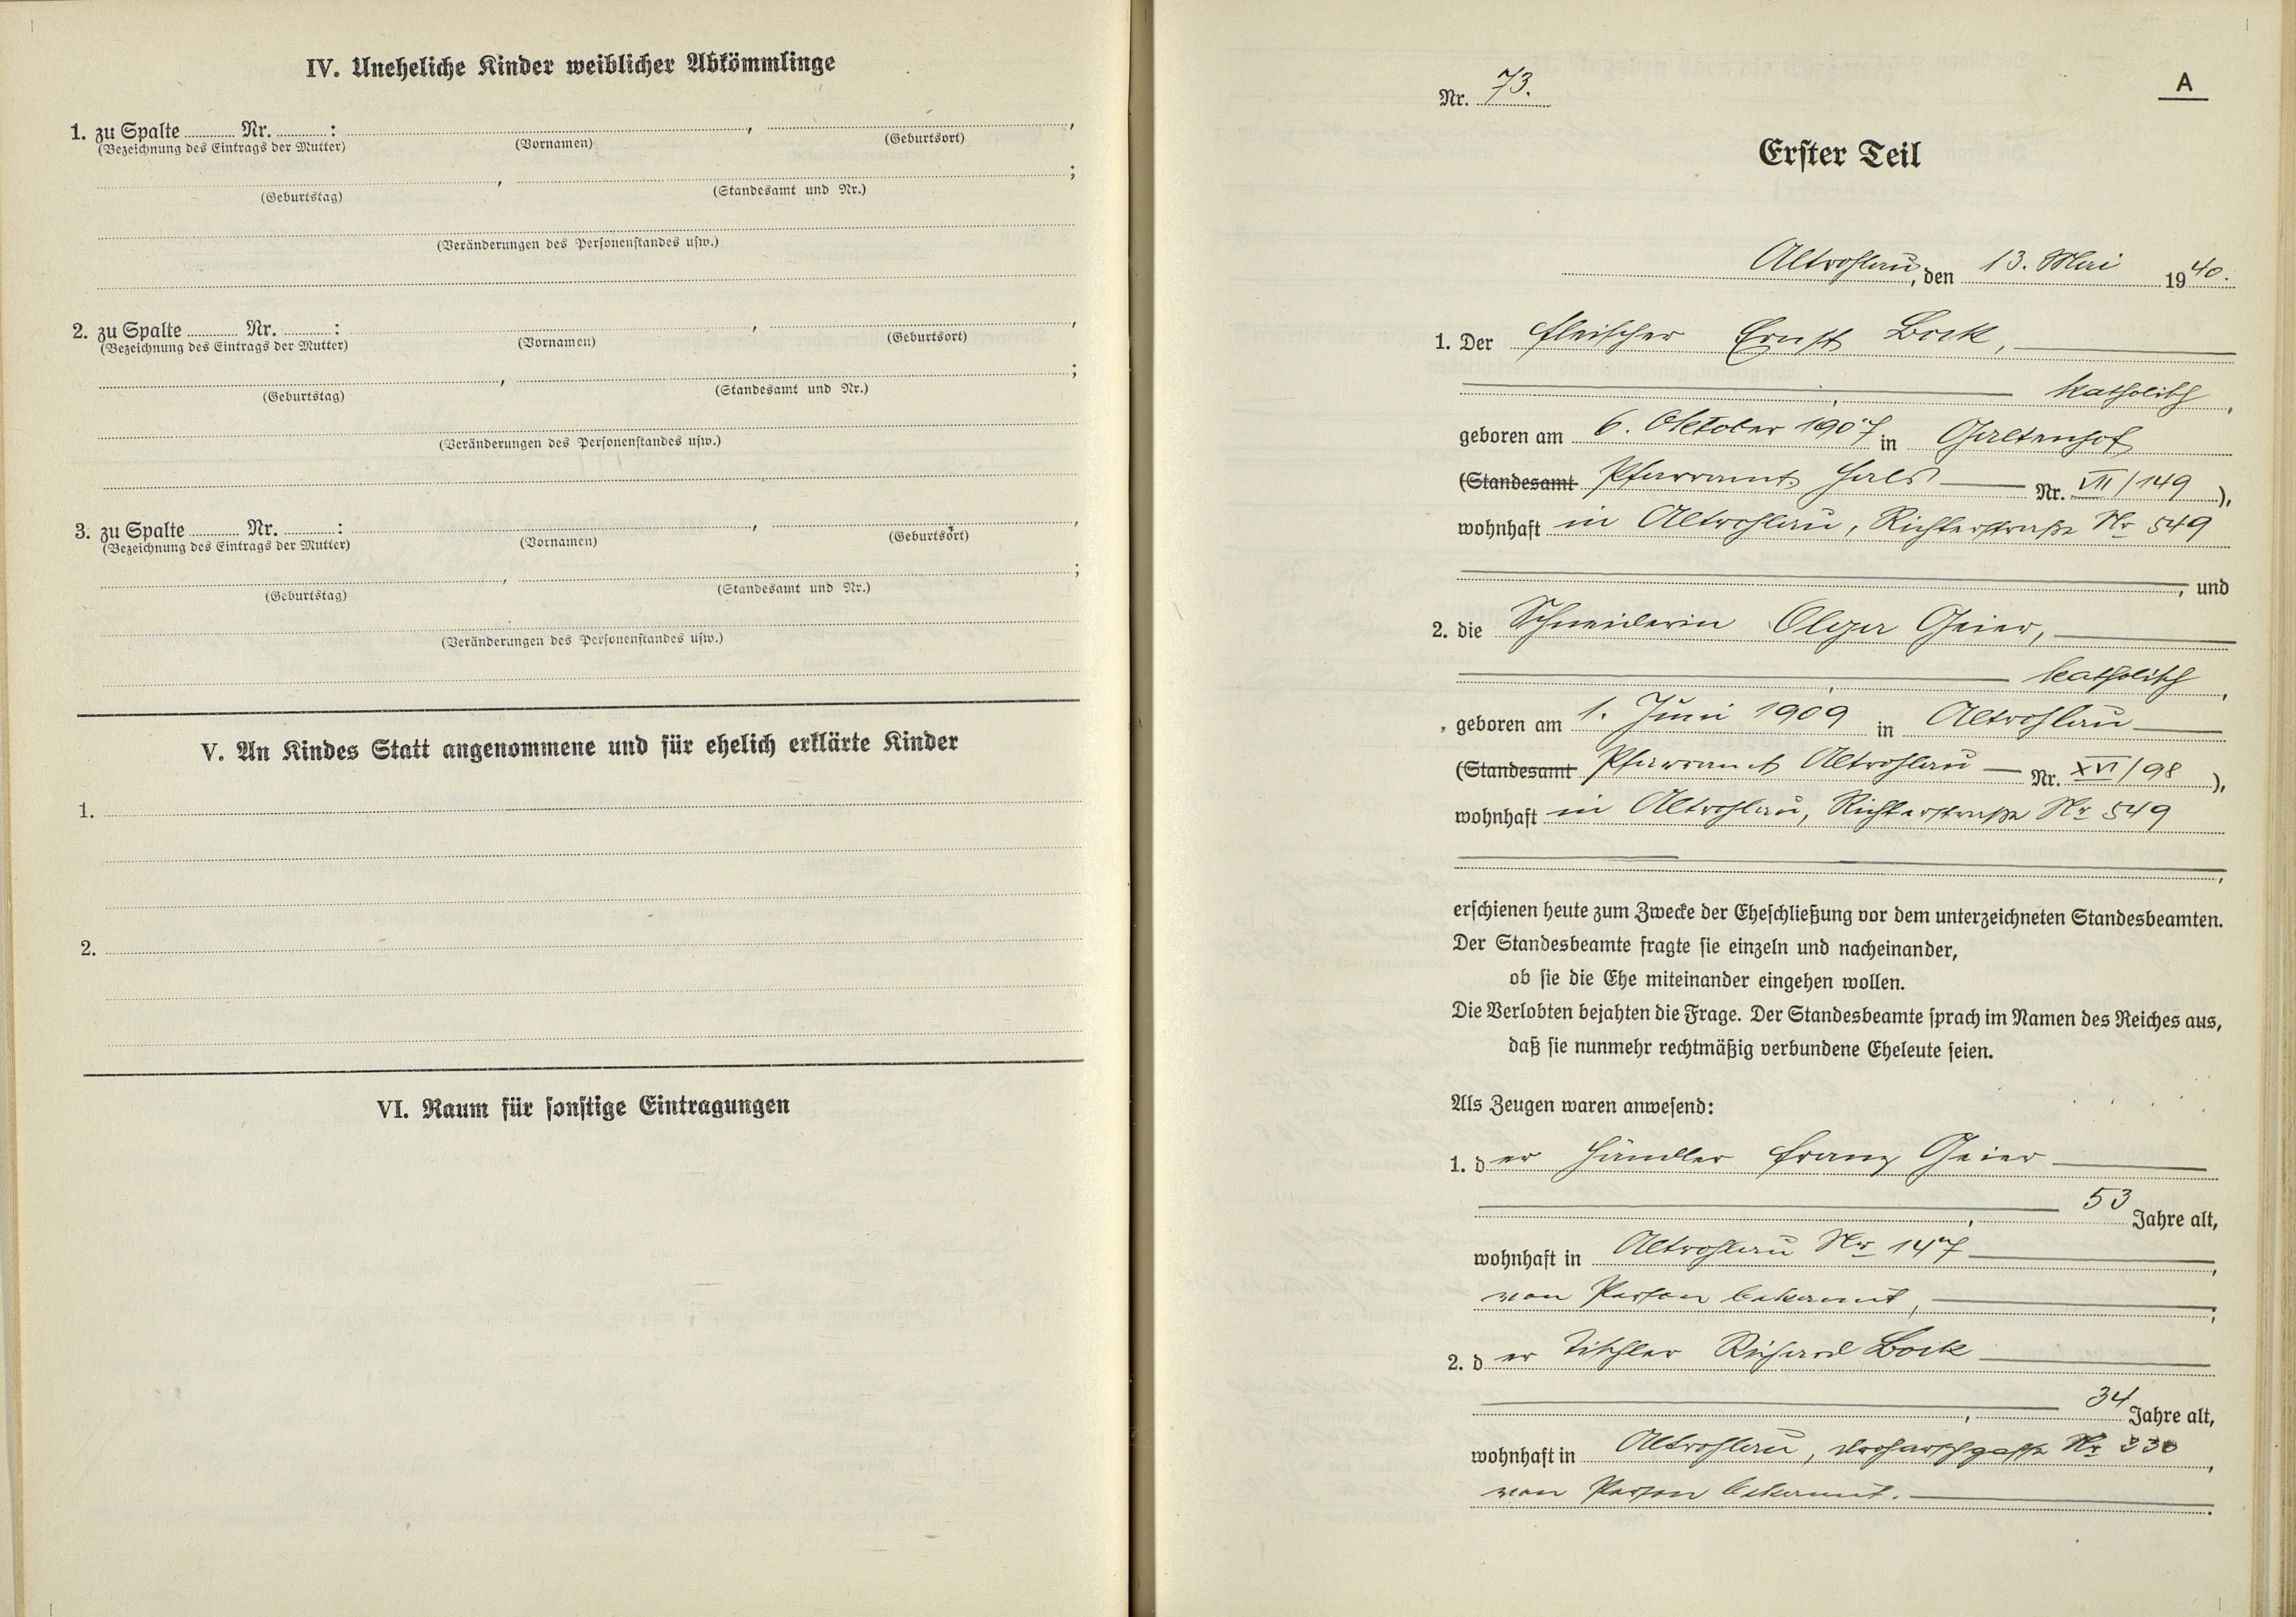 IV. Uneheliche Kinder weiblicher Abkömmlinge
1. zu Spalte ........ Nr. ........ : ........, ........,
(Bezeichnung des Eintrags der Mutter) (Vornamen) (Geburtsort)
........, ........;
(Geburtstag) (Standesamt und Nr.)
(Veränderungen des Personenstandes usw.)
2. zu Spalte ........ Nr. ........ : ........, ........,
(Bezeichnung des Eintrags der Mutter) (Vornamen) (Geburtsort)
........, ........;
(Geburtstag) (Standesamt und Nr.)
(Veränderungen des Personenstandes usw.)
3. zu Spalte ........ Nr. ........ : ........, ........,
(Bezeichnung des Eintrags der Mutter) (Vornamen) (Geburtsort)
........, ........;
(Geburtstag) (Standesamt und Nr.)
(Veränderungen des Personenstandes usw.)
V. An Kindes Statt angenommene und für ehelich erklärte Kinder
1.
2.
VI. Raum für sonstige Eintragungen
A
Nr. 73.
Erster Teil
Altrohlau, den 13. Mai 1940.
1. Der Fleischer Ernst Bock,
katholisch,
geboren am 6. Oktober 1907 in Galtenhof
(Standesamt Pfarramt Hals Nr. VII/149),
wohnhaft in Altrohlau, Richterstraße Nr 549
, und
2. die Schneiderin Olga Geier,
katholisch,
geboren am 1. Juni 1909 in Altrohlau
(Standesamt Pfarramt Altrohlau Nr. XVI/98),
wohnhaft in Altrohlau, Richterstraße Nr 549
,
erschienen heute zum Zwecke der Eheschließung vor dem unterzeichneten Standesbeamten.
Der Standesbeamte fragte sie einzeln und nacheinander,
ob sie die Ehe miteinander eingehen wollen.
Die Verlobten bejahten die Frage. Der Standesbeamte sprach im Namen des Reiches aus,
daß sie nunmehr rechtmäßig verbundene Eheleute seien.
Als Zeugen waren anwesend:
1. der Händler Franz Geier
, 53 Jahre alt,
wohnhaft in Altrohlau Nr 147,
von Person bekannt,;
2. der Tischler Richard Bock
, 34 Jahre alt,
wohnhaft in Altrohlau, Nr 330,
von Person bekannt.